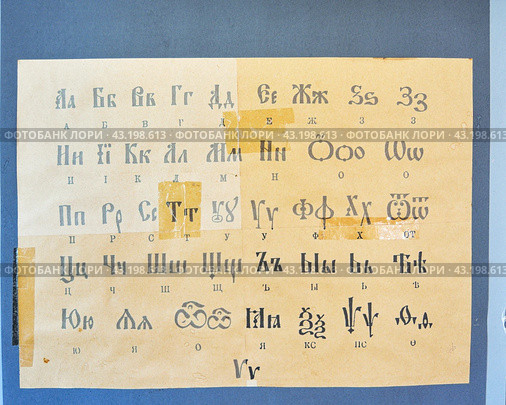 Аа Бб Вв Гг Дд Єє Жж Ѕѕ Зз
А Б В Г Д Е Ж З З
ФОТОБАНК ЛОРИ - 43.198.613 - ФОТОБАНК ЛОРИ - 43.198.613 - ФОТОБАНК ЛОРИ
Ии Її Кк Лл Мм Нн Оо Ѡѡ
И І К Л М Н О О
Пп Рр Сс Тт Ꙋꙋ Ѵѵ Фф Хх Ѿѿ
П Р С Т У У Ф Х ОТ
ФОТОБАНК ЛОРИ - 43.198.613 - ФОТОБАНК ЛОРИ - 43.198.613 - ФОТОБАНК ЛОРИ
Цц Чч Шш Щщ Ъъ Ыы Ьь Ѣѣ
Ц Ч Ш Щ Ъ Ы Ь Ѣ
Юю Ѧѧ Ѽѽ Ꙗꙗ Ѯѯ Ѱѱ Ѳѳ
Ю Я О Я КС ПС
Ѵѵ